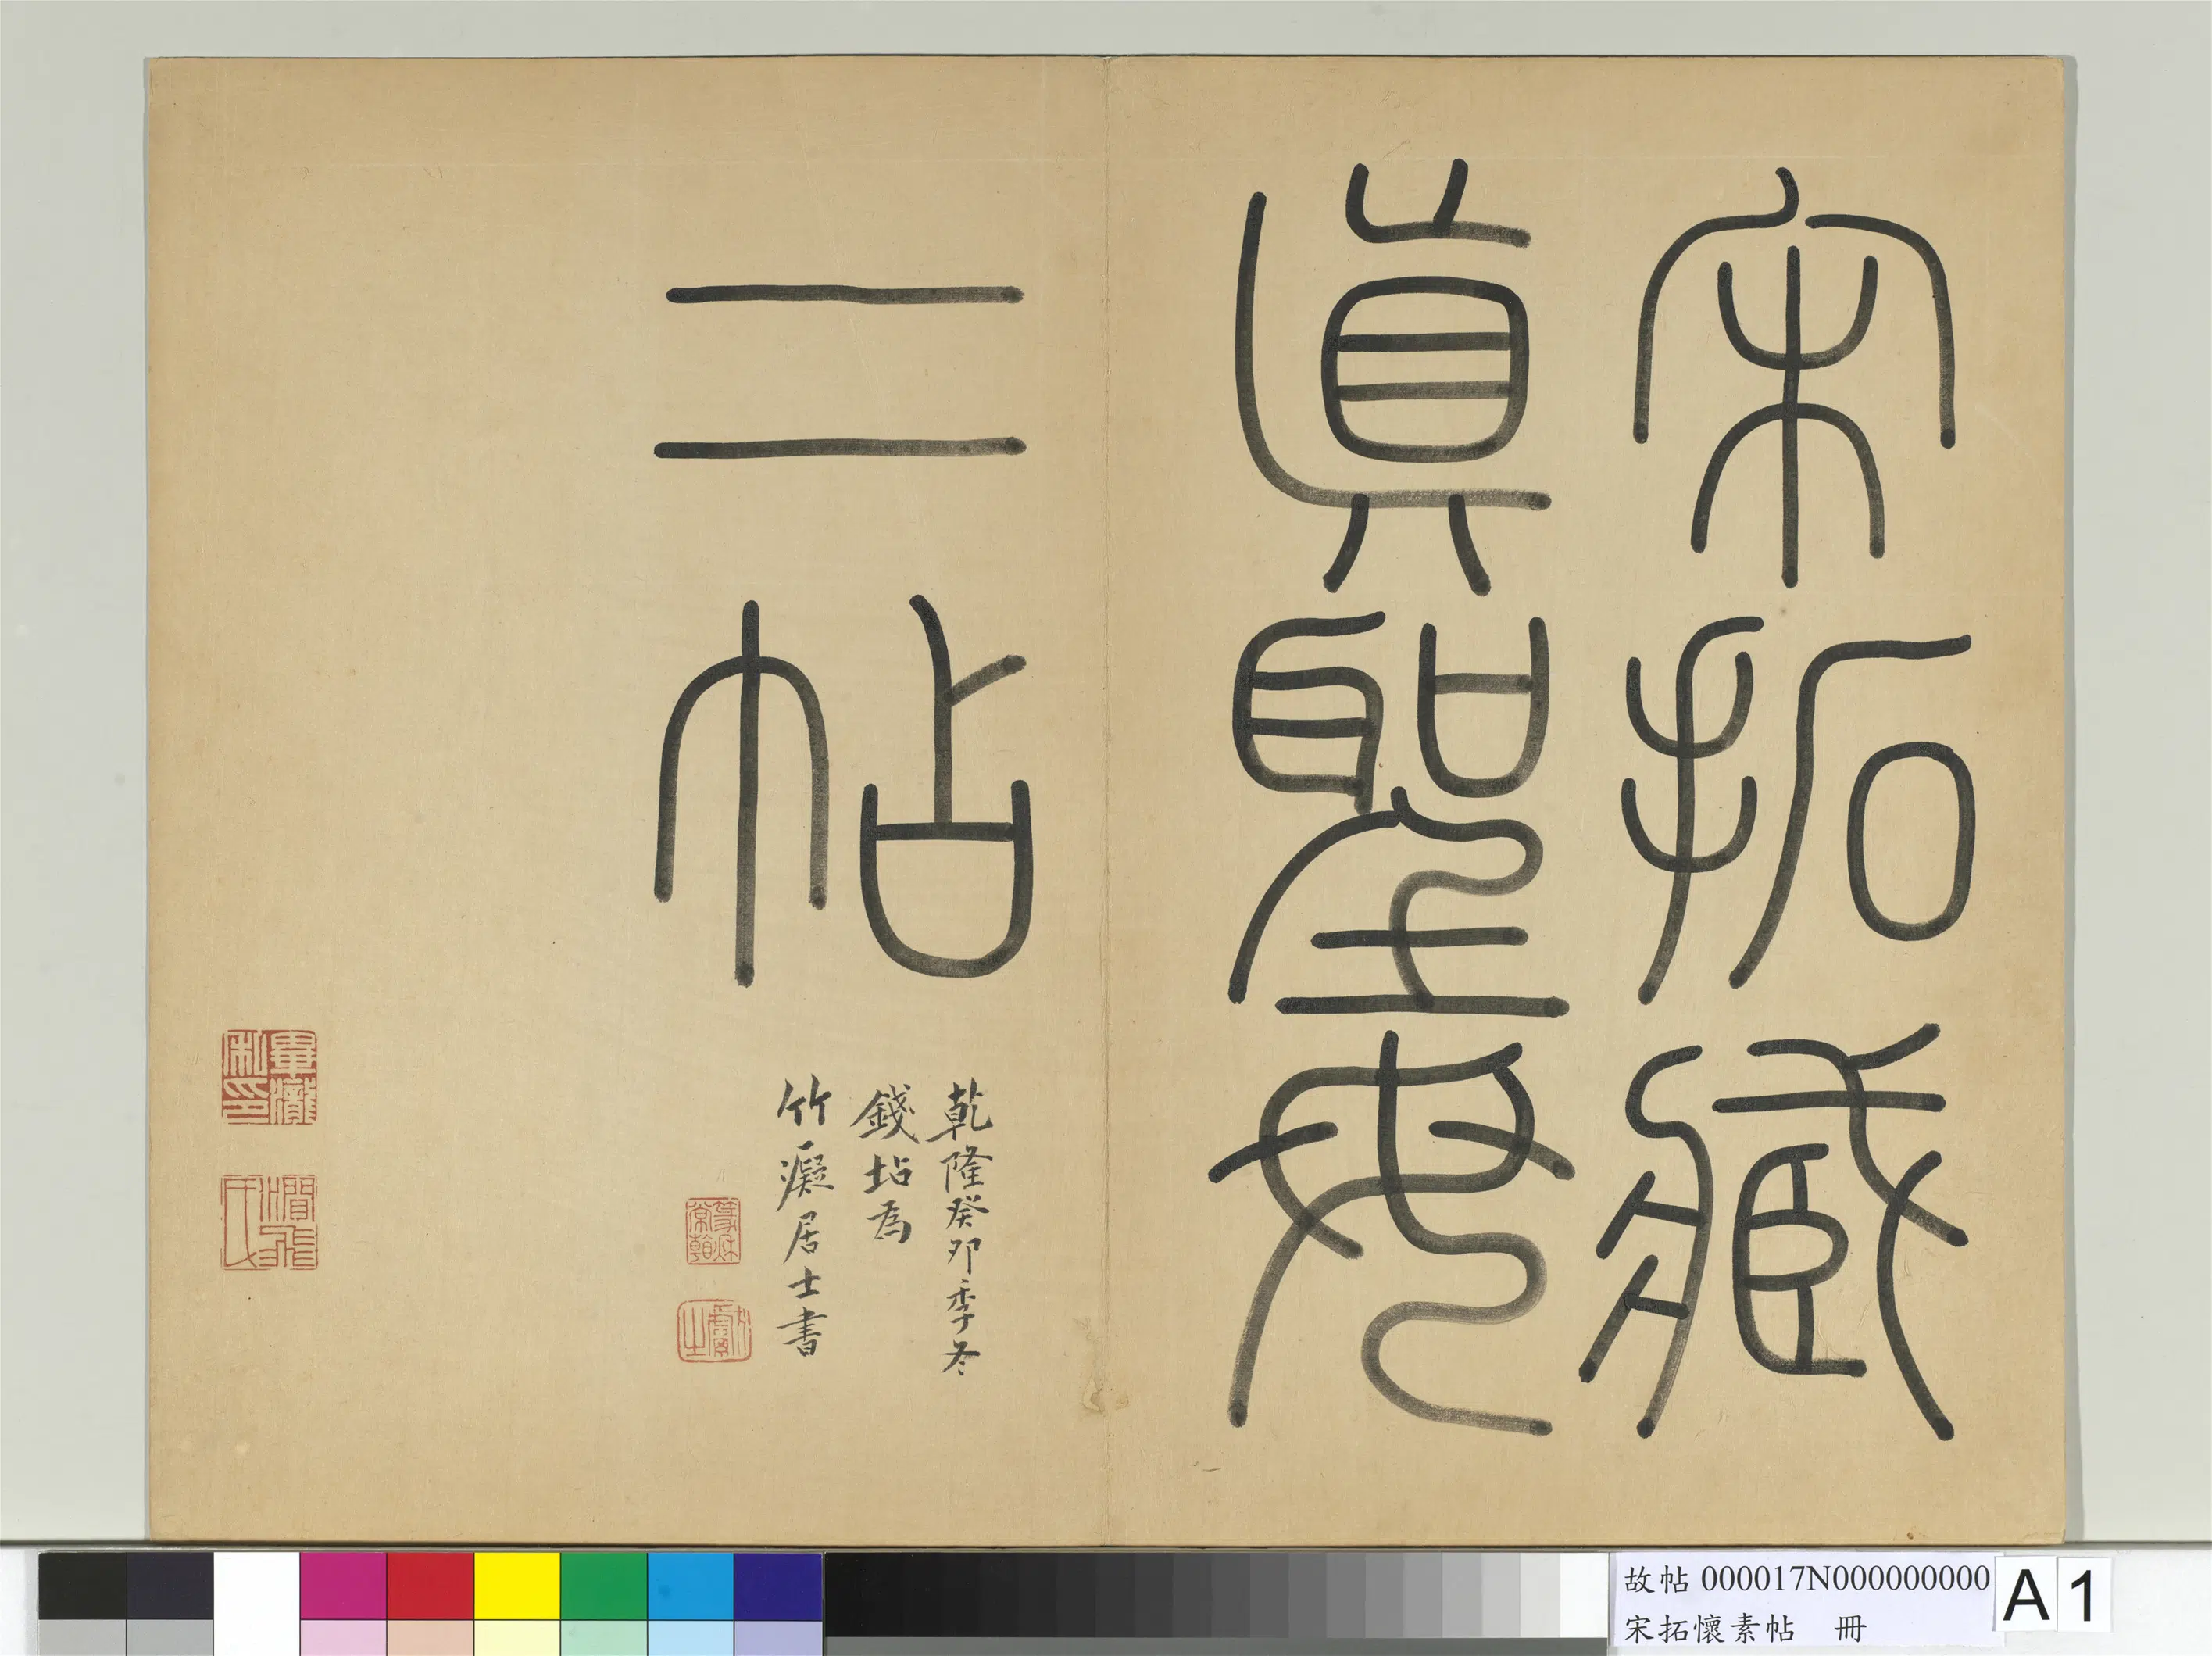 宋拓藏
眞聖母
二帖
乾隆癸卯季冬
錢坫為
竹癡居士書
畢瀧
私印
澗飛
氏
故帖 000017N000000000
宋拓懷素帖 冊
A 1